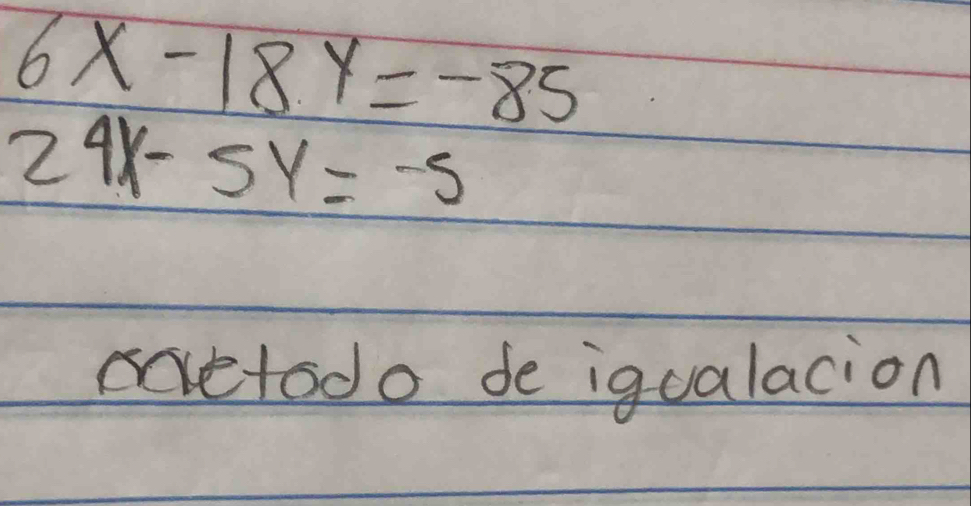 6X - 18Y = -85
24X - 5Y = -5
metodo de igualacion